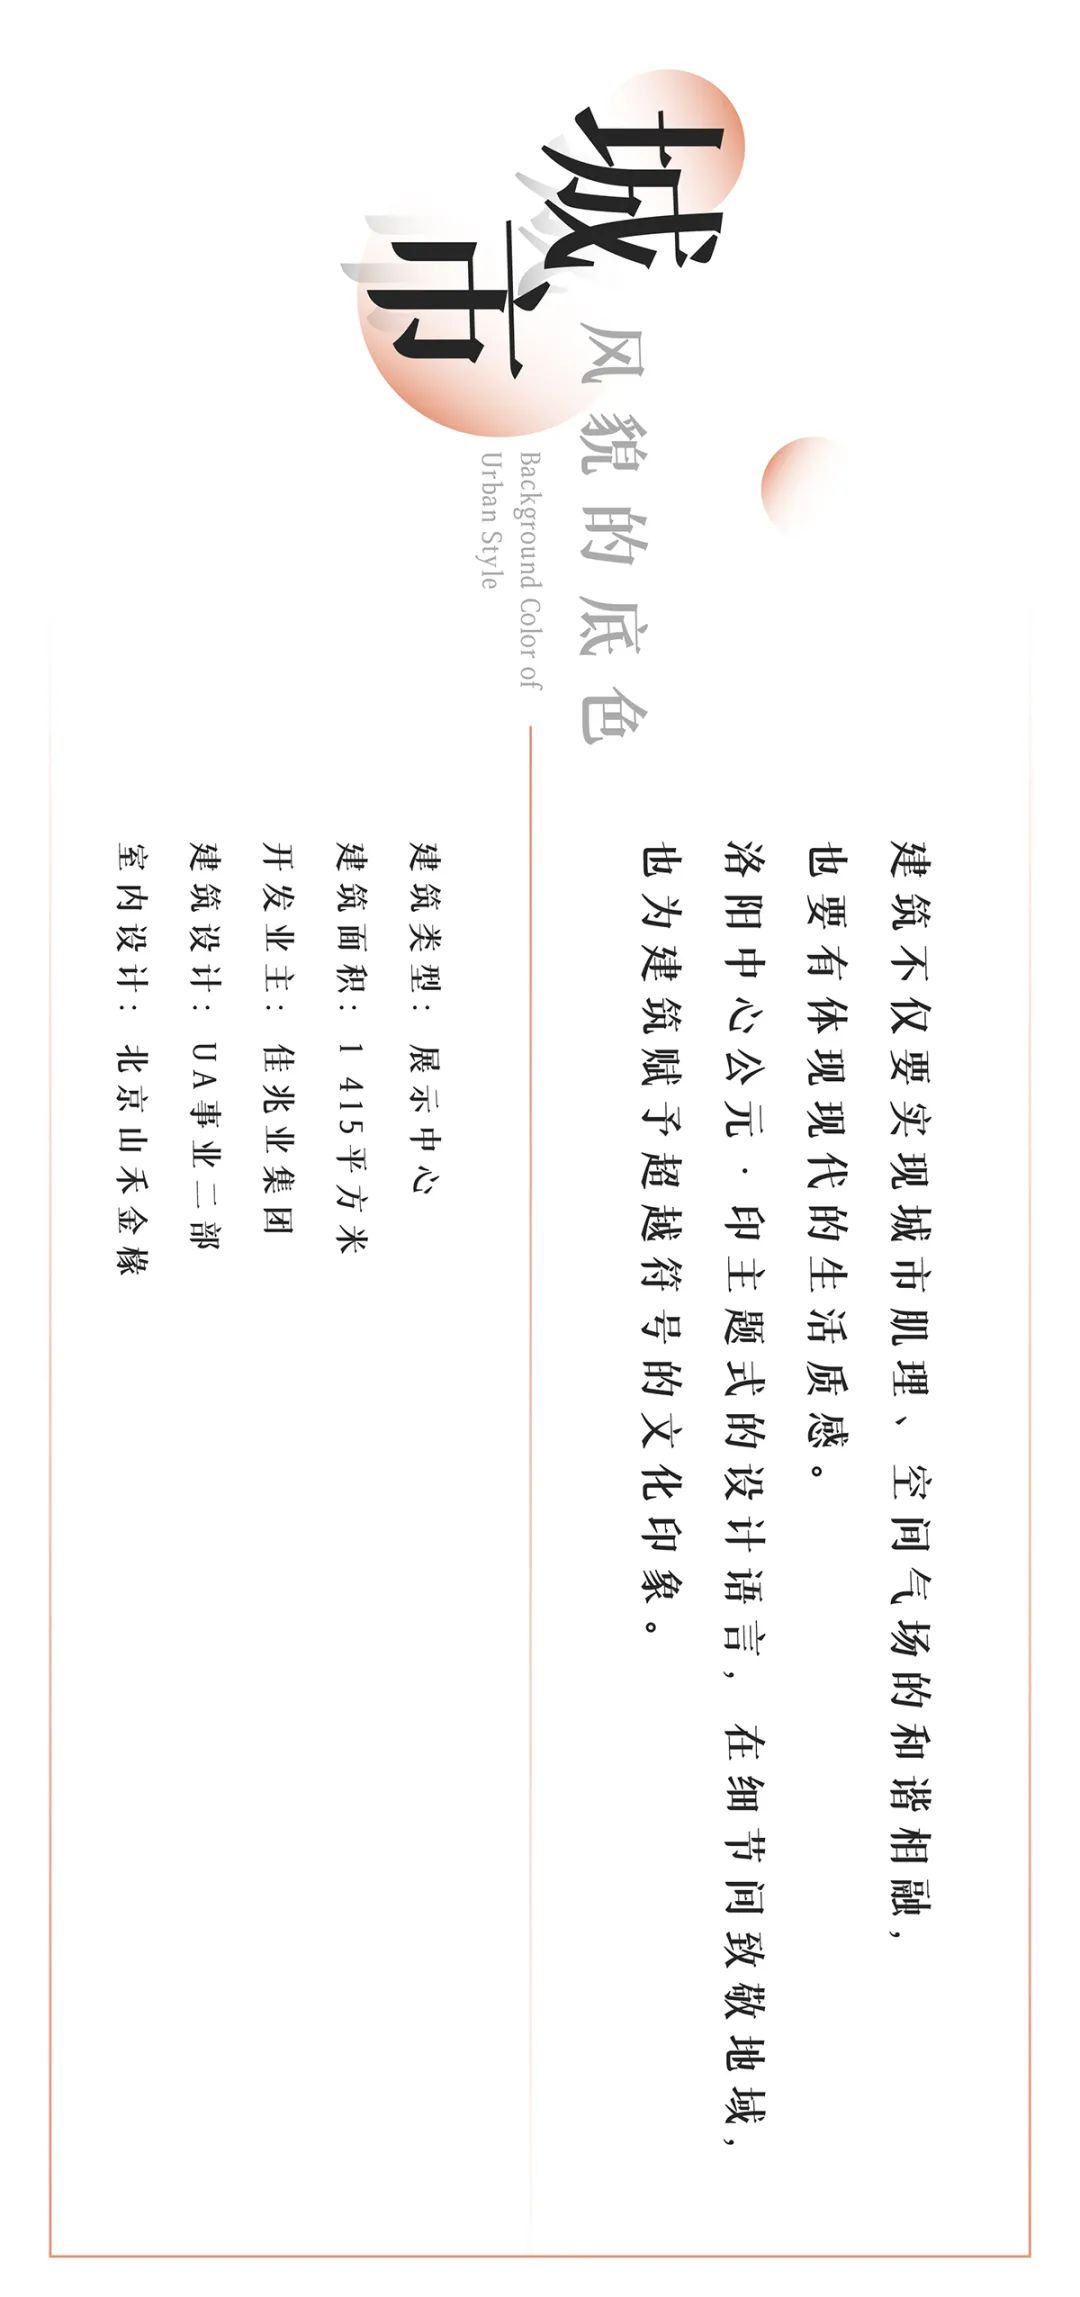 城市
风貌的底色
Background Color of
Urban Style
建筑不仅要实现城市肌理、空间气场的和谐相融，
也要有体现现代的生活质感。
洛阳中心公元·印主题式的设计语言，在细节间致敬地域，
也为建筑赋予超越符号的文化印象。
建筑类型：展示中心
建筑面积：1 415平方米
开发业主：佳兆业集团
建筑设计：UA事业二部
室内设计：北京山禾金缘